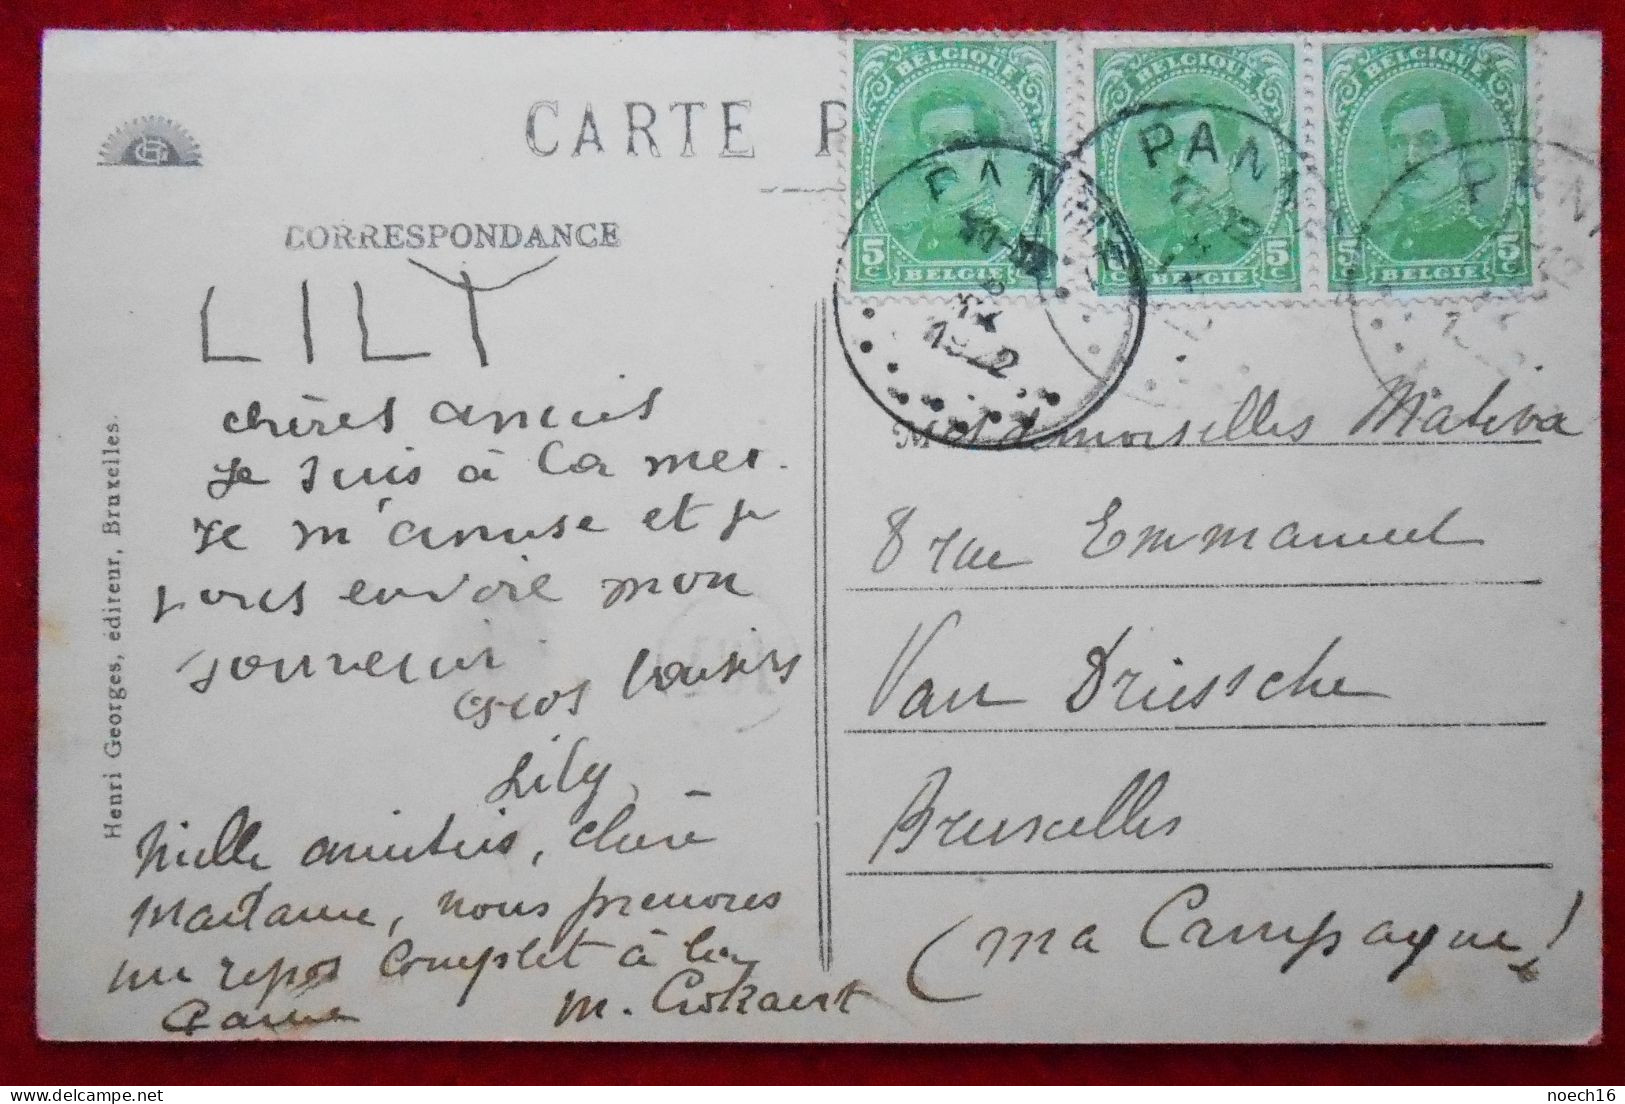 CARTE P
CORRESPONDANCE
LILY
chères amies
Je suis à la mer.
Je m'amuse et je
vous envoie mon
souvenir.
Gros baisers
Lily
Mille amitiés, chère
Madame, nous prenons
un repos complet à la
Panne
M. Crokaert
Henri Georges, éditeur, Bruxelles.
BELGIQUE
5 C
BELGIE
BELGIQUE
BELGIE
5 C
BELGIQUE
5
BELGIE
5 C
PANNE
1922
PANN
PANN
Mesdemoiselles Mativa
8 rue Emmanuel
Van Driessche
Bruxelles
(Ma Campagne)
noech16